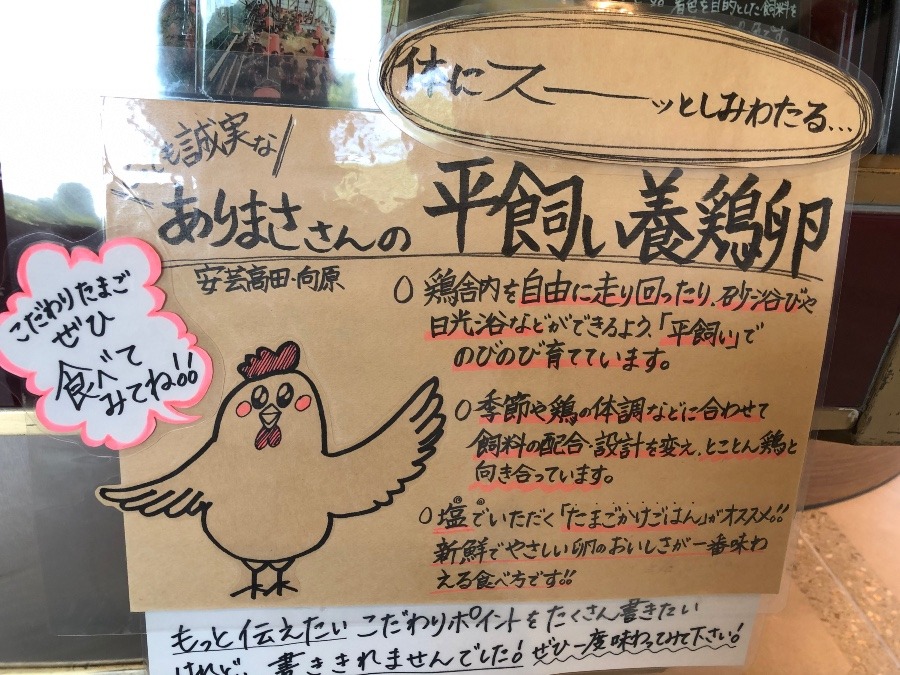 着色を目的とした飼料を
体にスーーッとしみわたる…
も誠実な
ありまささんの
平飼い養鶏卵
安芸高田・向原
こだわりたまご
ぜひ
食べて
みてね!!
○ 鶏舎内を自由に走り回ったり、砂浴びや
日光浴などができるよう、「平飼い」で
のびのび育てています。
○ 季節や鶏の体調などに合わせて
飼料の配合・設計を変え、とことん鶏と
向き合っています。
○ 塩でいただく「たまごかけごはん」がオススメ!!
新鮮でやさしい卵のおいしさが一番味わ
える食べ方です!!
もっと伝えたいこだわりポイントをたくさん書きたい
けれど、書ききれませんでした!ぜひ一度味わってみて下さい!